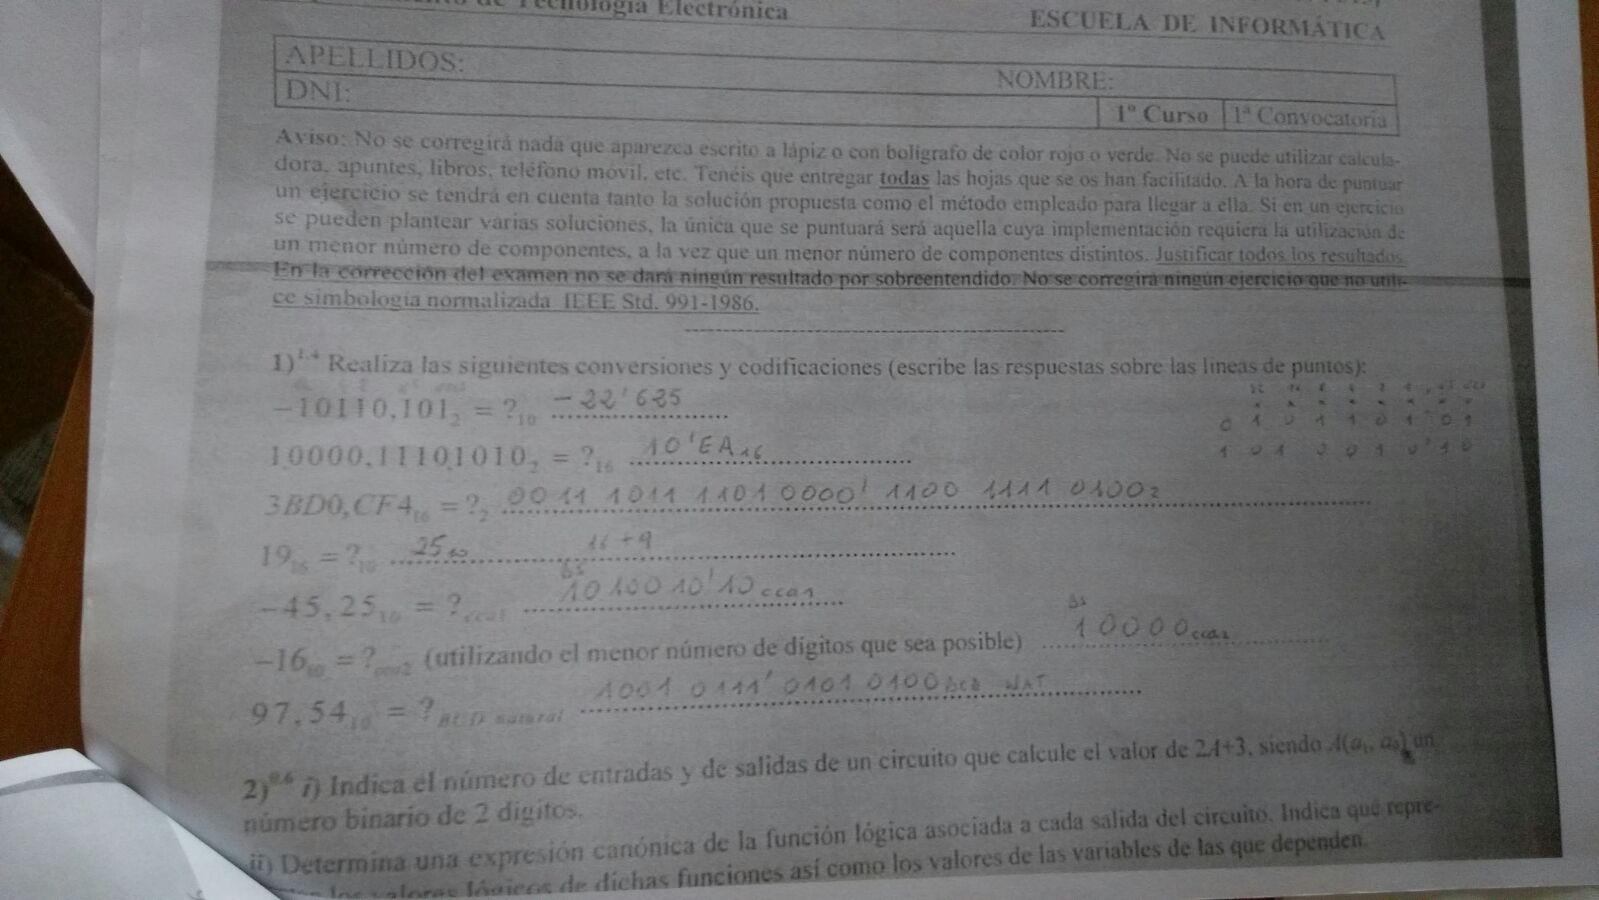 de Tecnología Electrónica
ESCUELA DE INFORMÁTICA
APELLIDOS:
NOMBRE:
DNI:
1º Curso 1ª Convocatoria
Aviso: No se corregirá nada que aparezca escrito a lápiz o con bolígrafo de color rojo o verde. No se puede utilizar calcula-
dora, apuntes, libros, teléfono móvil, etc. Tenéis que entregar todas las hojas que se os han facilitado. A la hora de puntuar
un ejercicio se tendrá en cuenta tanto la solución propuesta como el método empleado para llegar a ella. Si en un ejercicio
se pueden plantear varias soluciones, la única que se puntuará será aquella cuya implementación requiera la utilización de
un menor número de componentes, a la vez que un menor número de componentes distintos. Justificar todos los resultados.
En la corrección del examen no se dará ningún resultado por sobreentendido. No se corregirá ningún ejercicio que no utili-
ce simbología normalizada IEEE Std. 991-1986.
1)1,4 Realiza las siguientes conversiones y codificaciones (escribe las respuestas sobre las líneas de puntos):
−10110,101₂ = ?₁₀ −22'625
0 1 0 1 1 0 1 ' 0 1
10000,11101010₂ = ?₁₆ 10'EA₁₆
1 0 1 0 0 1 0 ' 1 0
3BD0,CF4₁₆ = ?₂ 0011 1011 1101 0000' 1100 1111 0100₂
19₁₆ = ?₁₀ 25₁₀ 16+9
−45,25₁₀ = ?cca1 1010010'10 cca1
−16₁₀ = ?cca2 (utilizando el menor número de dígitos que sea posible) 10000 cca2
97,54₁₀ = ?BCD natural 1001 0111' 0101 0100 BCD NAT
2)0,6 i) Indica el número de entradas y de salidas de un circuito que calcule el valor de 2A+3, siendo A(a₁, a₀) un
número binario de 2 dígitos.
ii) Determina una expresión canónica de la función lógica asociada a cada salida del circuito. Indica qué repre-
los valores lógicos de dichas funciones así como los valores de las variables de las que dependen.